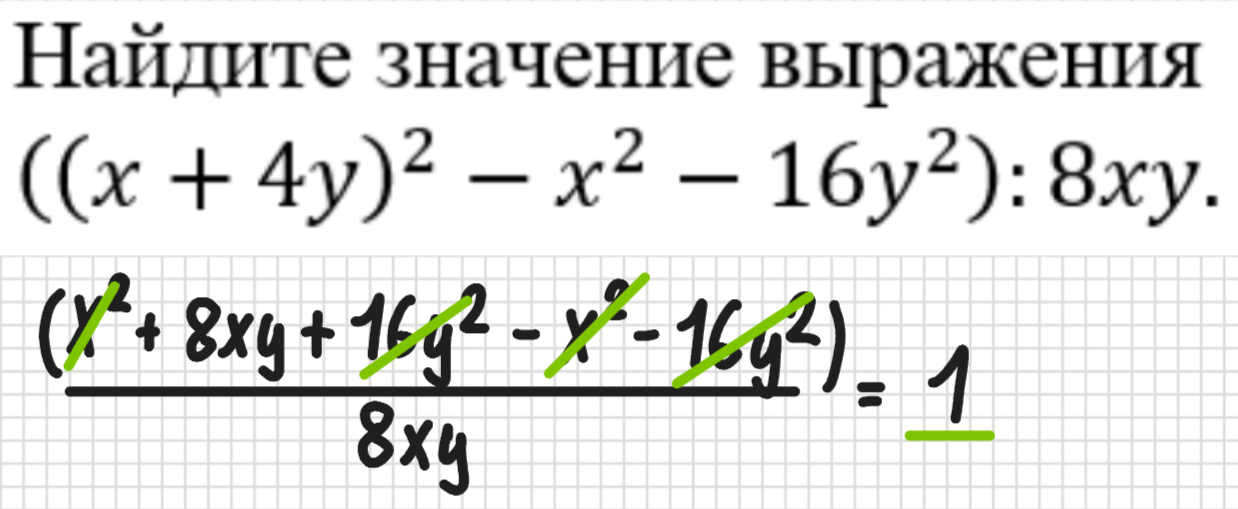 Найдите значение выражения
((x + 4y)² − x² − 16y²): 8xy.
(x² + 8xy + 16y² - x² - 16y²) = 1
8xy